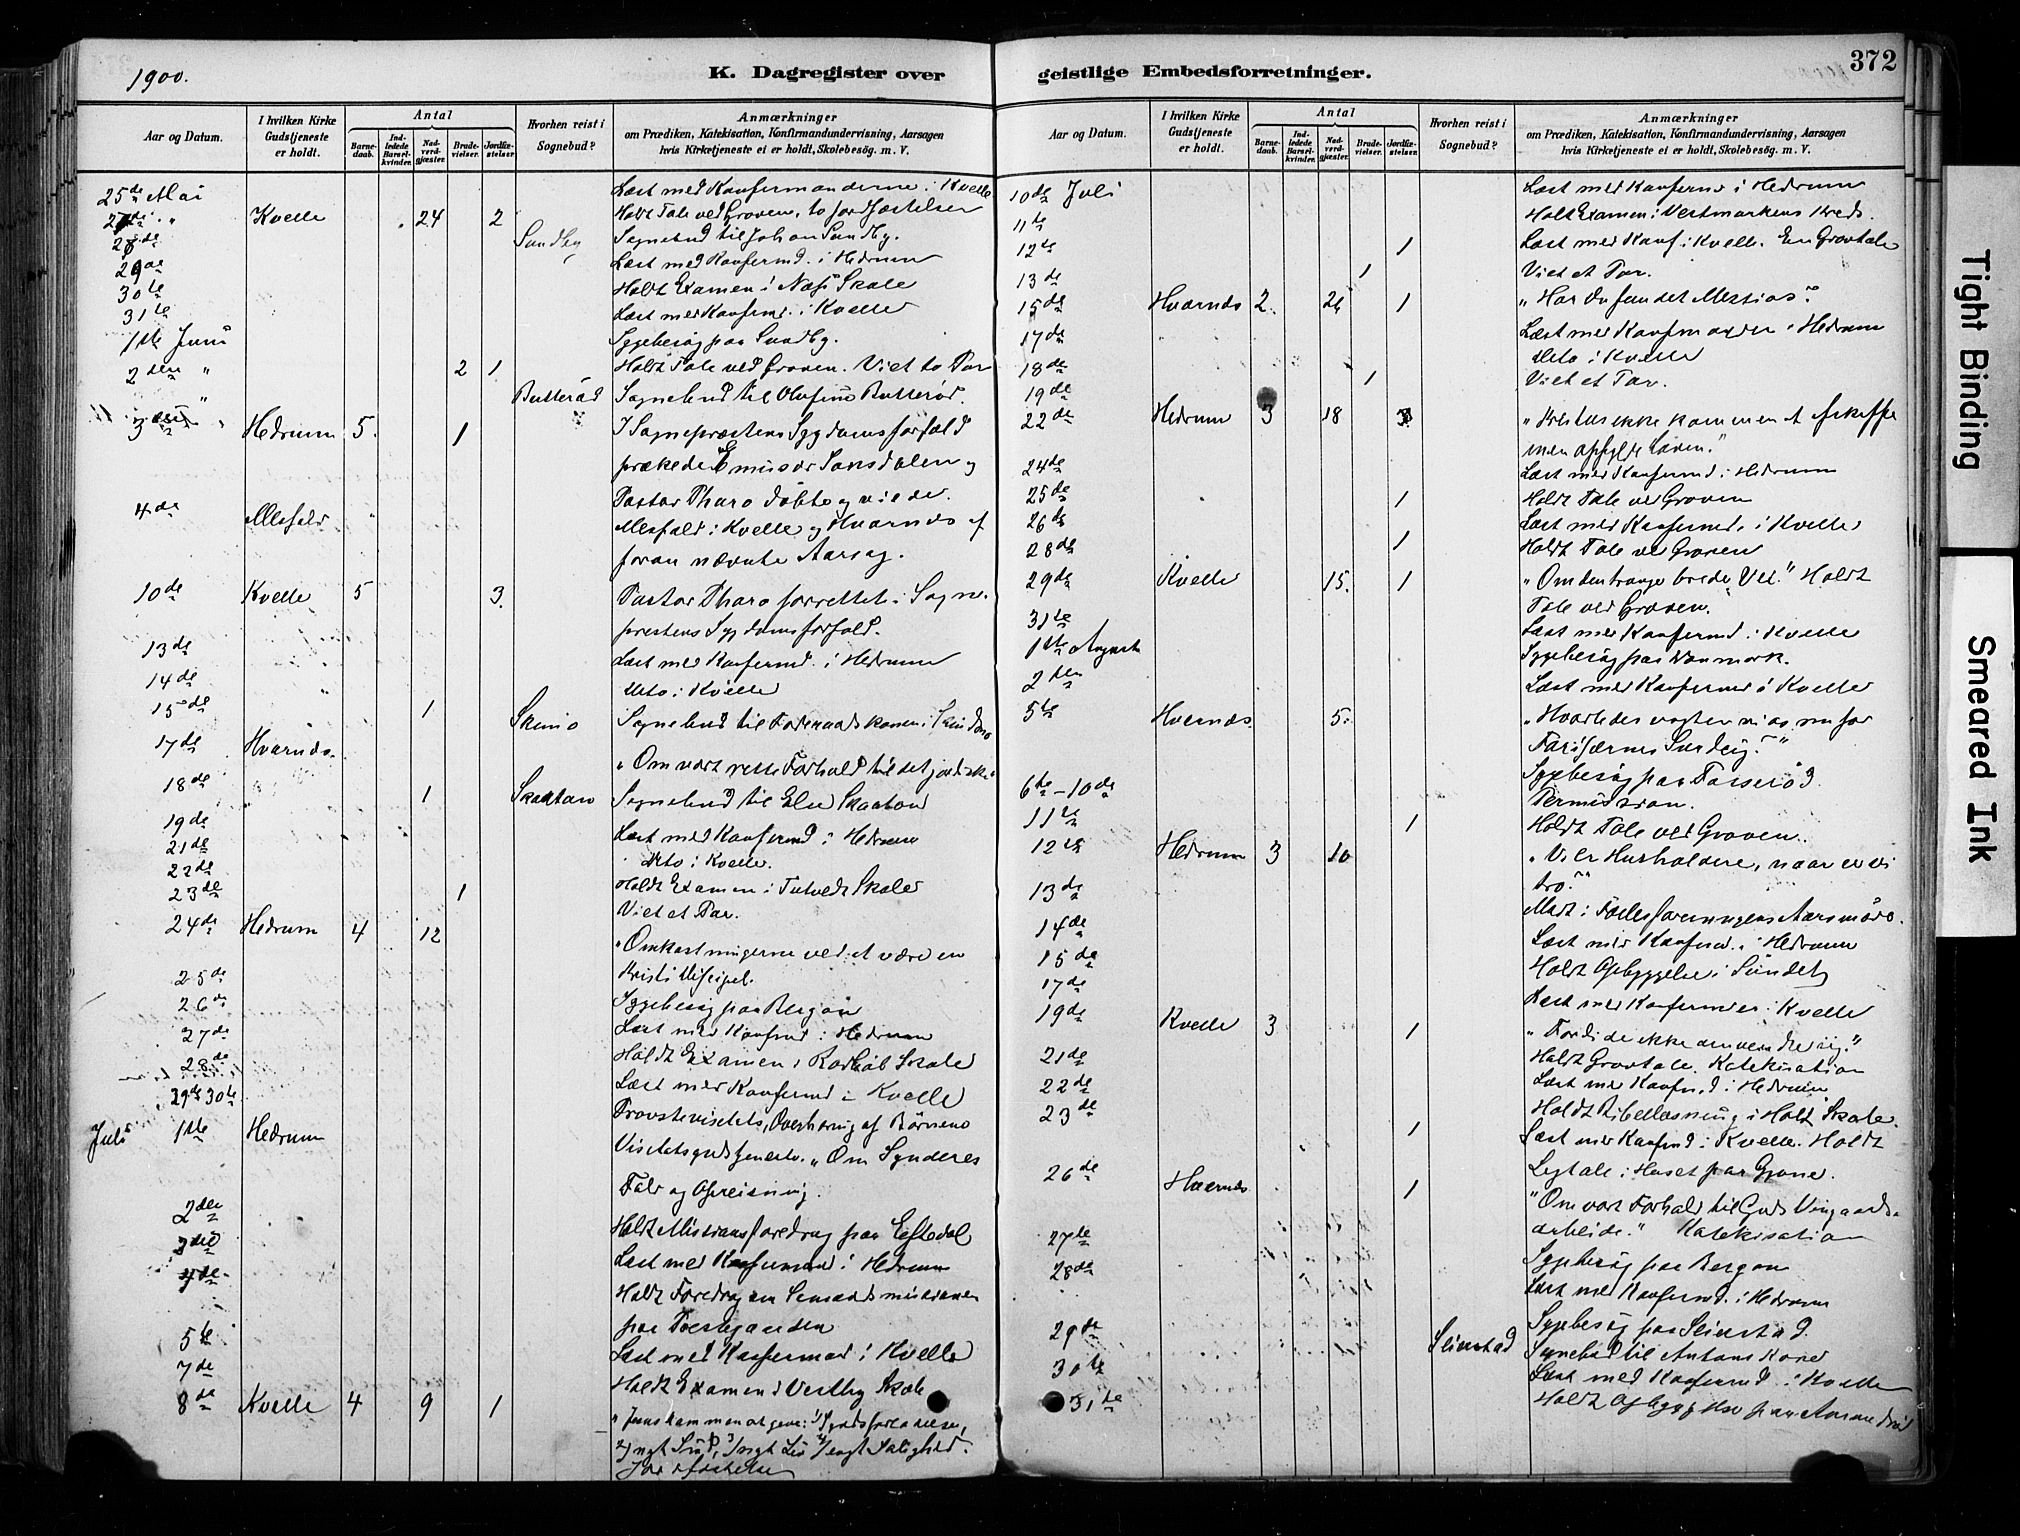 1900.
K. Dagregister over
Aar og Datum.
I hvilken Kirke Gudstjeneste er holdt.
Antal
Barnedaab.
Indledede Barselkvinder.
Nadverdgjæster.
Brudevielser.
Jordfæstelser.
Hvorhen reist i Sognebud?
Anmærkninger
om Prædiken, Katekisation, Konfirmandundervisning, Aarsagen
hvis Kirketjeneste ei er holdt, Skolebesög. m. V.
25de Mai Læst med Konfermanderne i Kvelle
27de " Kvelle 24 2 Holdt Tale ved Graven, to Jordfæstelser
28de Sundby Sognebud til Johan Sundby.
29de Læst med Konfermd. i Hedrum
30te Holdt Examen i Næss Skole
31te Læst med Konfermd. i Kvelle
1ste Juni Sygebesøg paa Sundby.
2den " 2 1 Holdt Tale ved Graven. Viet to Par
Butterød Sognebud til Olufine Butterød.
3die " Hedrum 5 1 I Sogneprestens Sygdomsforfald
prækede Emissær Sonsdalen og
Pastor Tharo døbte og viede.
4de Messfald Messfald i Kvelle og Hvarnes af
foran nævnte Aarsag.
10de Kvelle 5 3. Pastor Tharo forrettet i Sogne-
prestens Sygdomsforfald.
13de Læst med Konfermd. i Hedrum
14de Dito i Kvelle
15de 1 Skino Sognebud til Foderaadskonen i
17de Hvarnes "Om vort rette Forhold til det jordiske"
18de 1 Skaatan Sognebud til Else Skaatan
19de Læst med Konfermd i Hedrum
21de Dito i Kvelle.
22de Holdt Examen i Tutvedt Skole
23de 1 Viet et Par.
24de Hedrum 4 12 "Omkostningerne ved at være en
Kristi Discipel.
25de Sygebesøg paa Bergan
26de Læst med Konfmd i Hedrum
27de Holdt Examen i Skole
28de Læst med Konfermd i Kvelle
29de 30te Provstevisitats, Overhøring af Børnene
Juli 1ste Hedrum Visitatsgudstjeneste. "Om Synderes
Fald og Opreisning.
2den Holdt Missionsforedrag paa Eftedal
3die Læst med Konfermd i Hedrum
4de Holdt Foredrag om Sømandsmissionen
paa Prestegaarden
5te Læst med Konfermd i Kvelle
7de Holdt Examen i Vestby Skole
8de Kvelle 4 9 1 "Jesus kommen at give: 1) Syndsforladelse,
2) nyt Sind, 3) nyt Liv 4) evigt Salighed.
Jordfæstelse
372
geistlige Embedsforretninger.
Aar og Datum.
I hvilken Kirke Gudstjeneste er holdt.
Antal
Barnedaab.
Indledede Barselkvinder.
Nadverdgjæster.
Brudevielser.
Jordfæstelser.
Hvorhen reist i Sognebud?
Anmærkninger
om Prædiken, Katekisation, Konfirmandundervisning, Aarsagen
hvis Kirketjeneste ei er holdt, Skolebesög. m. V.
10de Juli Læst med Konfermd i Hedrum
11te Holdt Examen i Vestmarkens Kreds.
12te 1 Læst med Konf. i Kvelle. En Gravtale
13de 1 Viet et Par.
15de Hvarnes 2. 26 1 "Har du fundet Messias?"
17de Læst med Konfmander i Hedrum
18de Dito i Kvelle
19de 1 Viet et Par.
22de Hedrum 3 18 3. "Kristus ikke kommen at afskaffe
men opfylde Loven."
24de Læst med Konfermd. i Hedrum
25de 1 Holdt Tale ved Graven
26de Læst med Konfermd. i Kvelle
28de 1 Holdt Tale ved Graven
29de Kvelle 15. 1 "Om den trange brede Vei." Holdt
Tale ved Graven.
31te Læst med Konfermd. i Kvelle
1ste August Sygebesøg paa
2den Læst med Konfermd i Kvelle
5te Hvarnes 5. "Hvorledes vogter vi os nu for
Farisæernes Surdeig?"
6te-10de Sygebesøg paa
Permission.
11te 1 Holdt Tale ved Graven.
12te Hedrum 3 10 "Vi er Husholdere, naar er vi
tro?"
13de Mødt i Fællesforeningens Aarsmøde.
14de Læst med Konfermd. i Hedrum
15de Holdt Opbyggelse i Sundet
17de Læst med Konfermder i Kvelle
19de Kvelle 3 1 "Fordi de ikke omvendte sig."
Holdt Gravtale. Katekisation
21de Læst med Konfmd i Hedrum
22de Holdt Bibellæsning i Holt Skole.
23de 1 Læst med Konfmd i Kvelle. Holdt
Ligtale i Huset paa
26de Hvarnes 1 "Om vort Forhold til Guds Vingaards-
arbeide." Katekisation
27de Sygebesøg paa Bergan
28de Læst med Konfermd. i Hedrum
29de Sygebesøg paa Seierstad.
Seierstad Sognebud til Antons Kone
30te Læst med Konfermd i Kvelle
31te Holdt Opbyggelse paa
Tight Binding
Smeared Ink